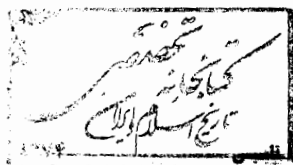 کتابخانه تخصصی
تاریخ اسلام و ایران